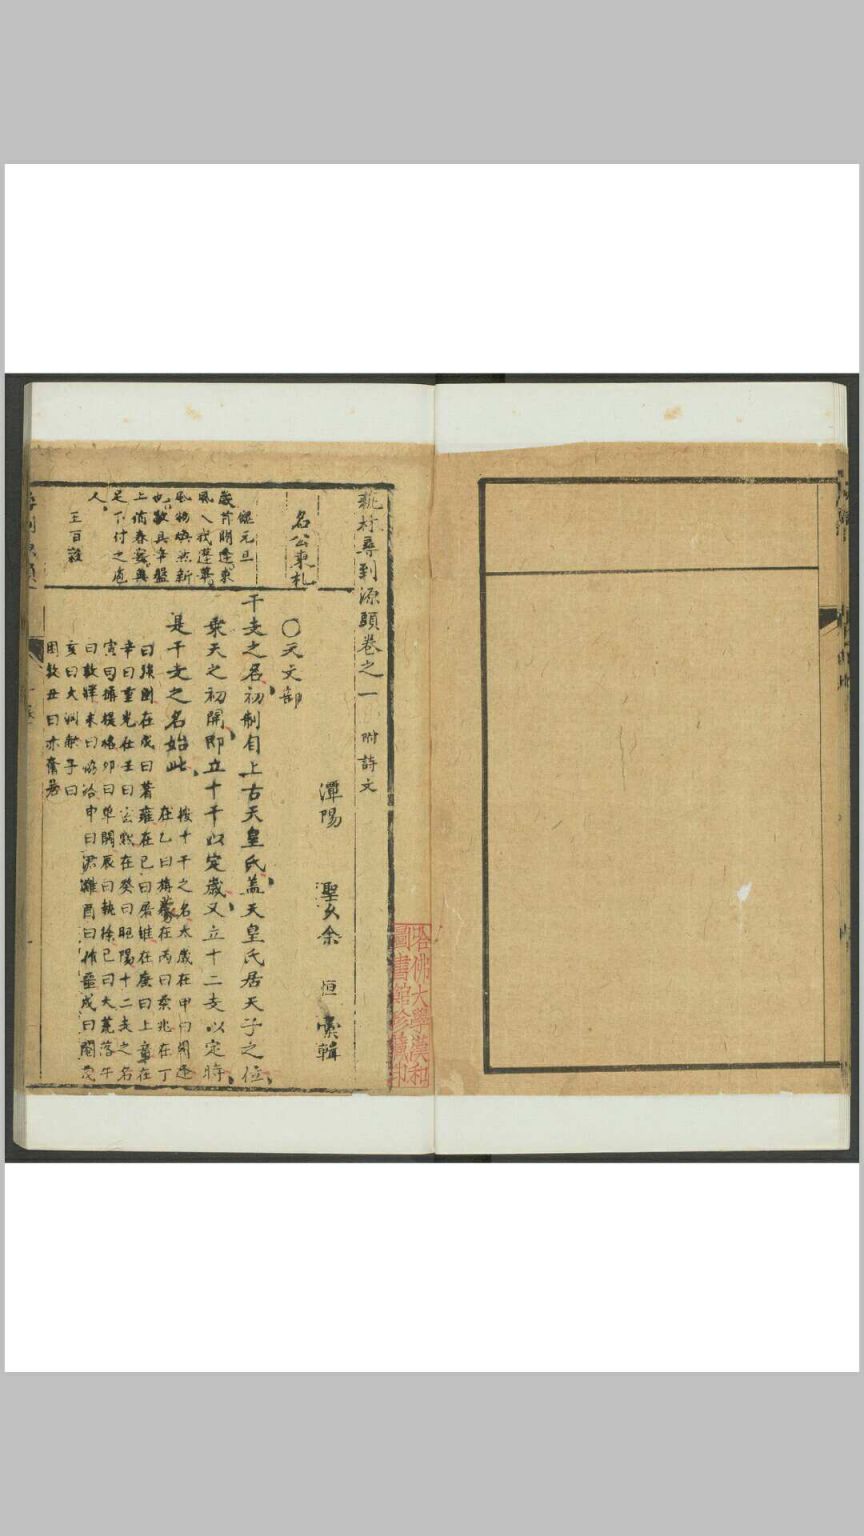 尋到源頭卷之一 附詩文
潭陽 聖乂余 恒 彙輯
名公柬札
餽元旦
歲前開逢東
風入我
風物煥然新
也敬具辛盤
上侑春
足下付之庖
人
王百穀
○天文部
干支之名初制自上古天皇氏蓋天皇氏居天子之位
乘天之初開即立十干以定歲又立十二支以定時
是干支之名始此
按十干之名太歲在甲曰閼逢
在乙曰旃蒙在丙曰柔兆在丁
曰強圉在戊曰著雍在己曰屠維在庚曰上章在
辛曰重光在壬曰玄黓在癸曰昭陽十二支之名
寅曰攝提格卯曰單閼辰曰執徐巳曰大荒落午
曰敦牂未曰協洽申曰涒灘酉曰作噩戌曰閹茂
亥曰大淵獻子曰
困敦丑曰赤奮若
哈佛大學漢和
圖書館珍藏印